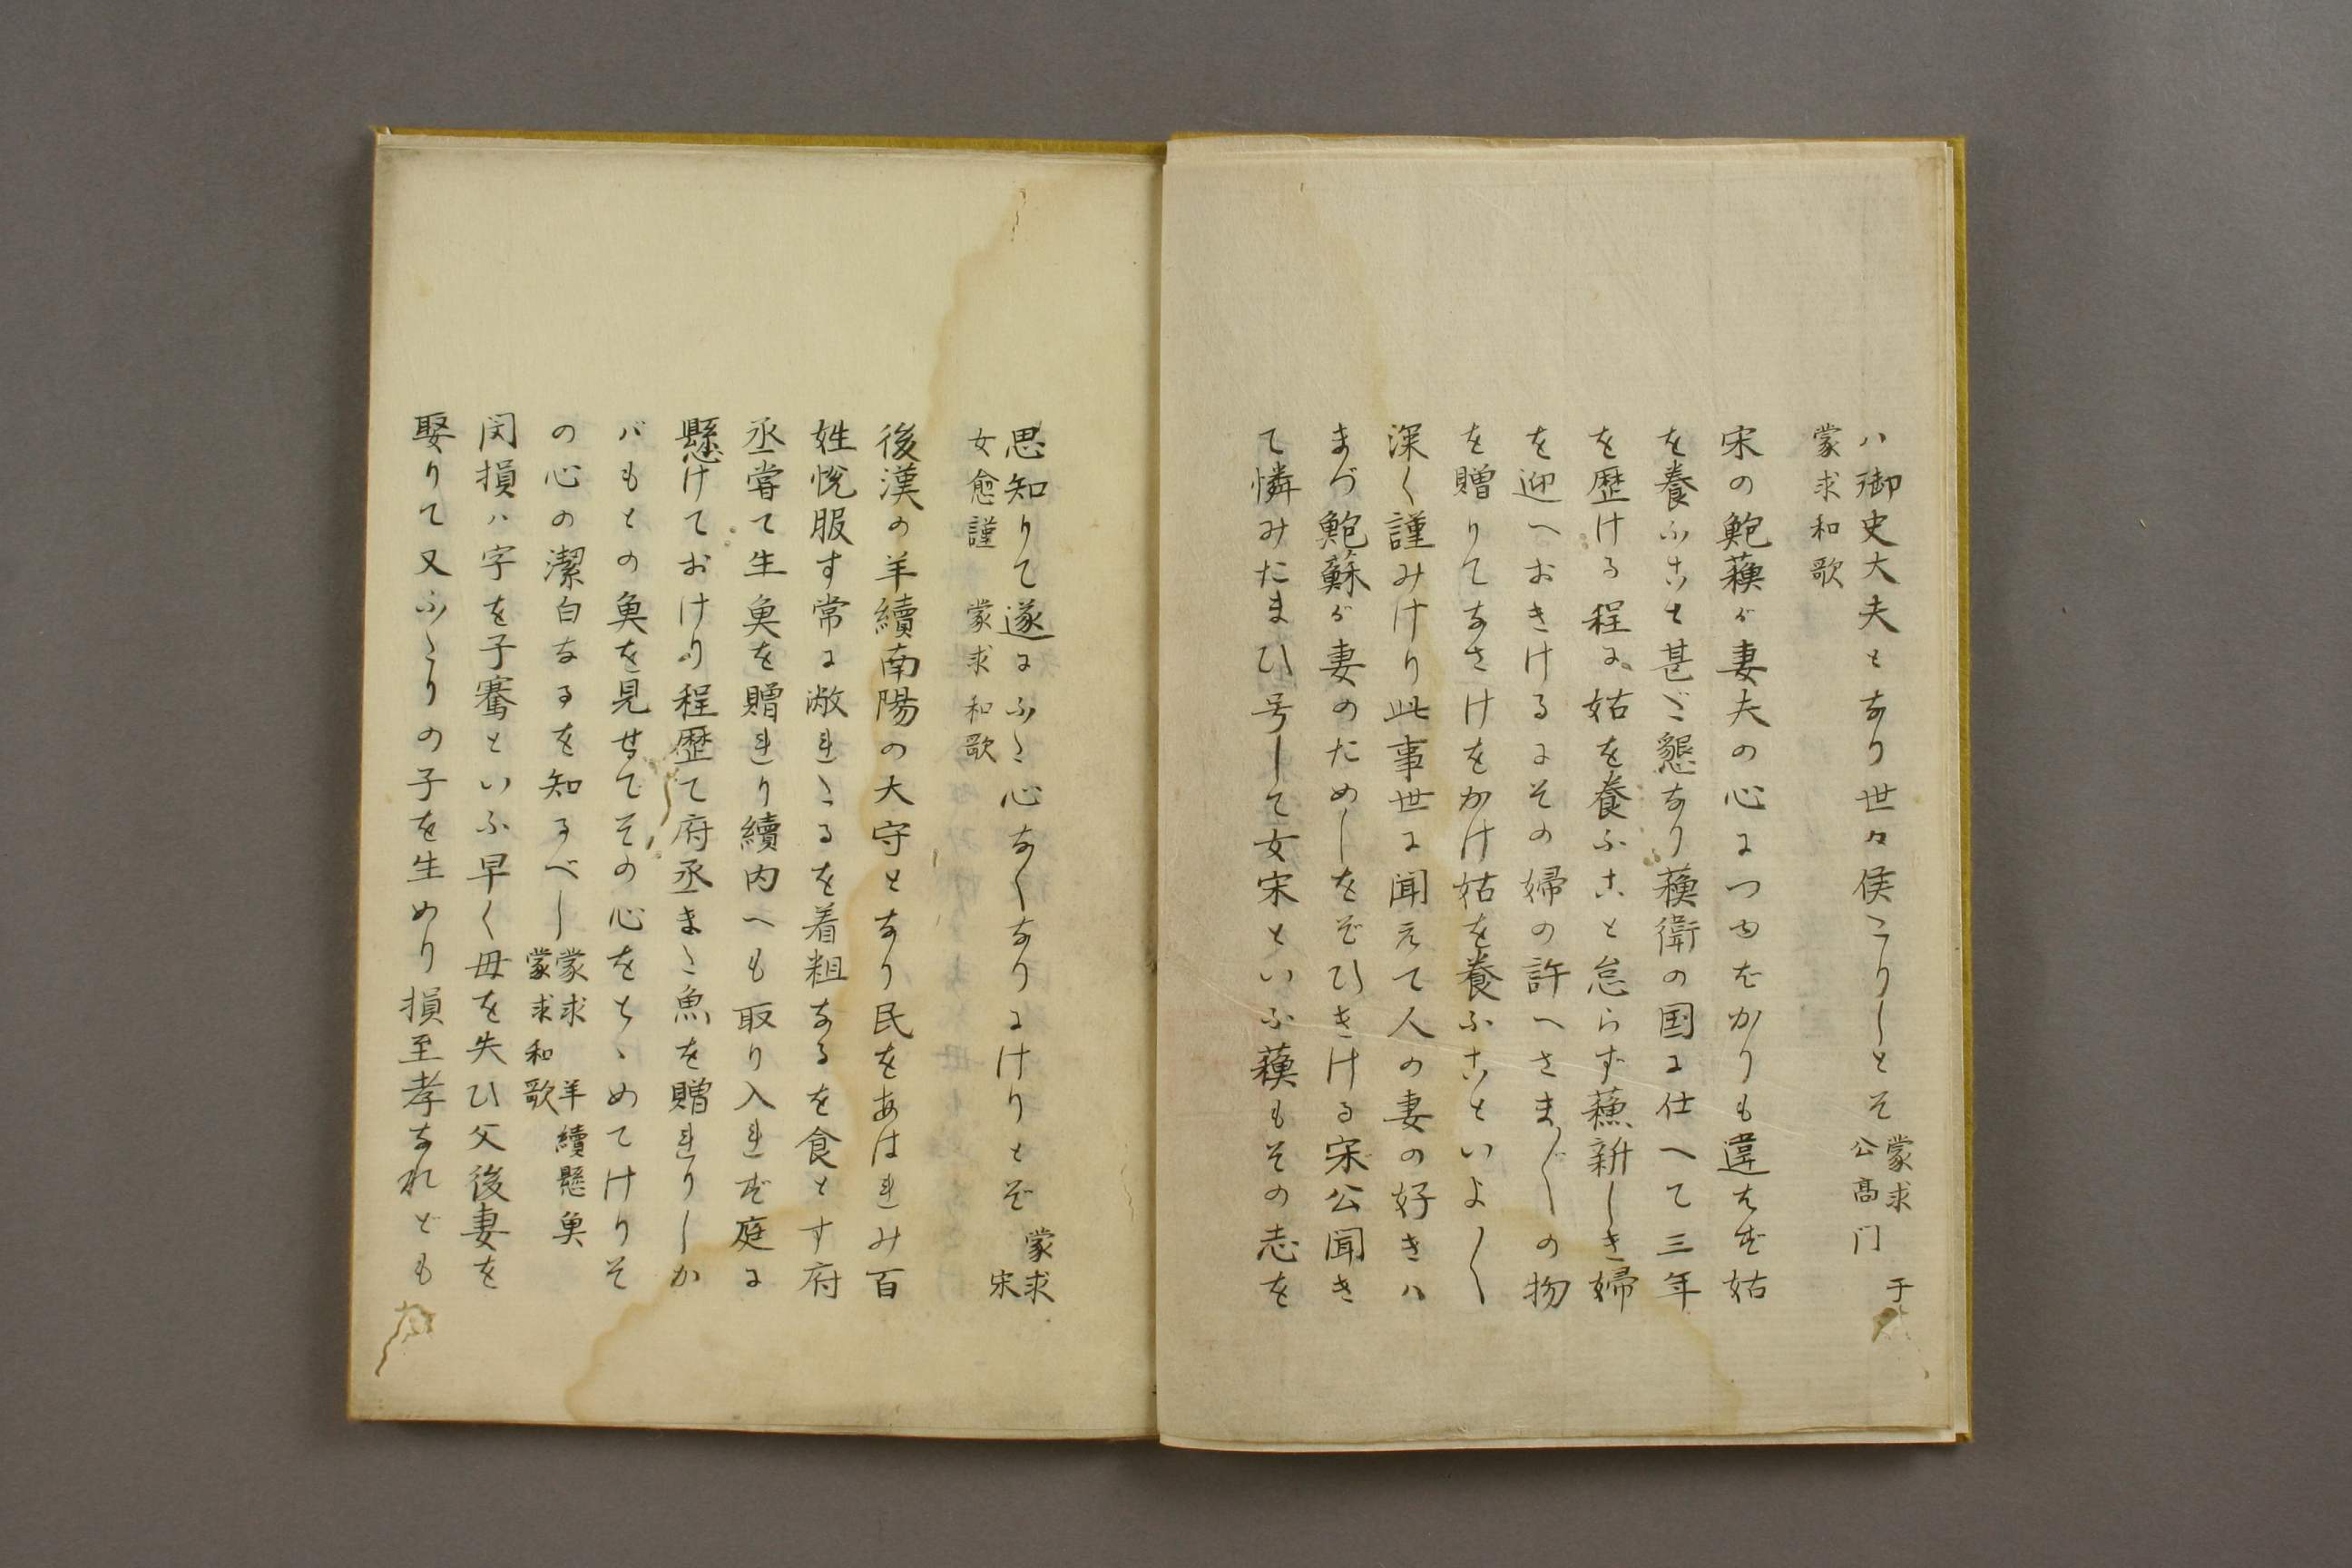 ハ御史大夫となり世々侯たりしとそ 蒙求 于
公高门
蒙求和歌
宋の鮑蘓が妻夫の心につゆばかりも違はず姑
を養ふこと甚だ懇なり蘓衛の国に仕へて三年
を歴ける程に姑を養ふこと怠らず蘓新しき婦
を迎へおきけるにその婦の許へさま〴〵の物
を贈りてなさけをかけ姑を養ふこといよ〳〵
深く謹みけり此事世に聞えて人の妻の好きハ
まづ鮑蘇が妻のためしをぞひきける宋公聞き
て憐みたまひ号して女宋といふ蘓もその志を
思知りて遂にふた心なくなりにけりとぞ 蒙求
宋
女愈謹 蒙求和歌
後漢の羊續南陽の大守となり民をあはれみ百
姓悦服す常に敝れたるを着粗なるを食とす府
丞嘗て生魚を贈れり續内へも取り入れず庭に
懸けておけり程歴て府丞また魚を贈れりしか
バもとの魚を見せてその心をとゞめてけりそ
の心の潔白なるを知るべし 蒙求 羊續懸魚
蒙求和歌
閔損ハ字を子騫といふ早く母を失ひ父後妻を
娶りて又ふたりの子を生めり損至孝なれども